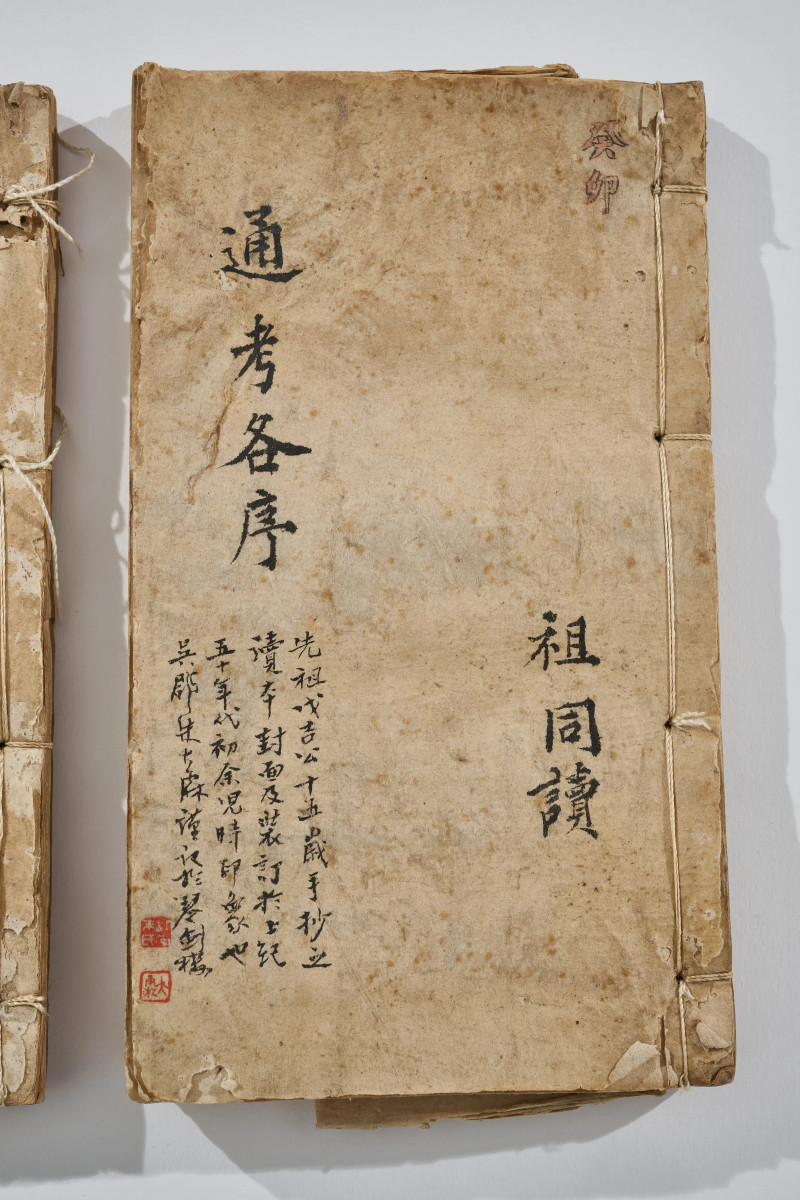 癸卯
祖同讀
通考各序
先祖戊吉公十五歲手抄之
讀本封面及裝訂於上紀
五十年代初余兒時印象也
吳郡朱大霖謹記於琴劍樓
大霖